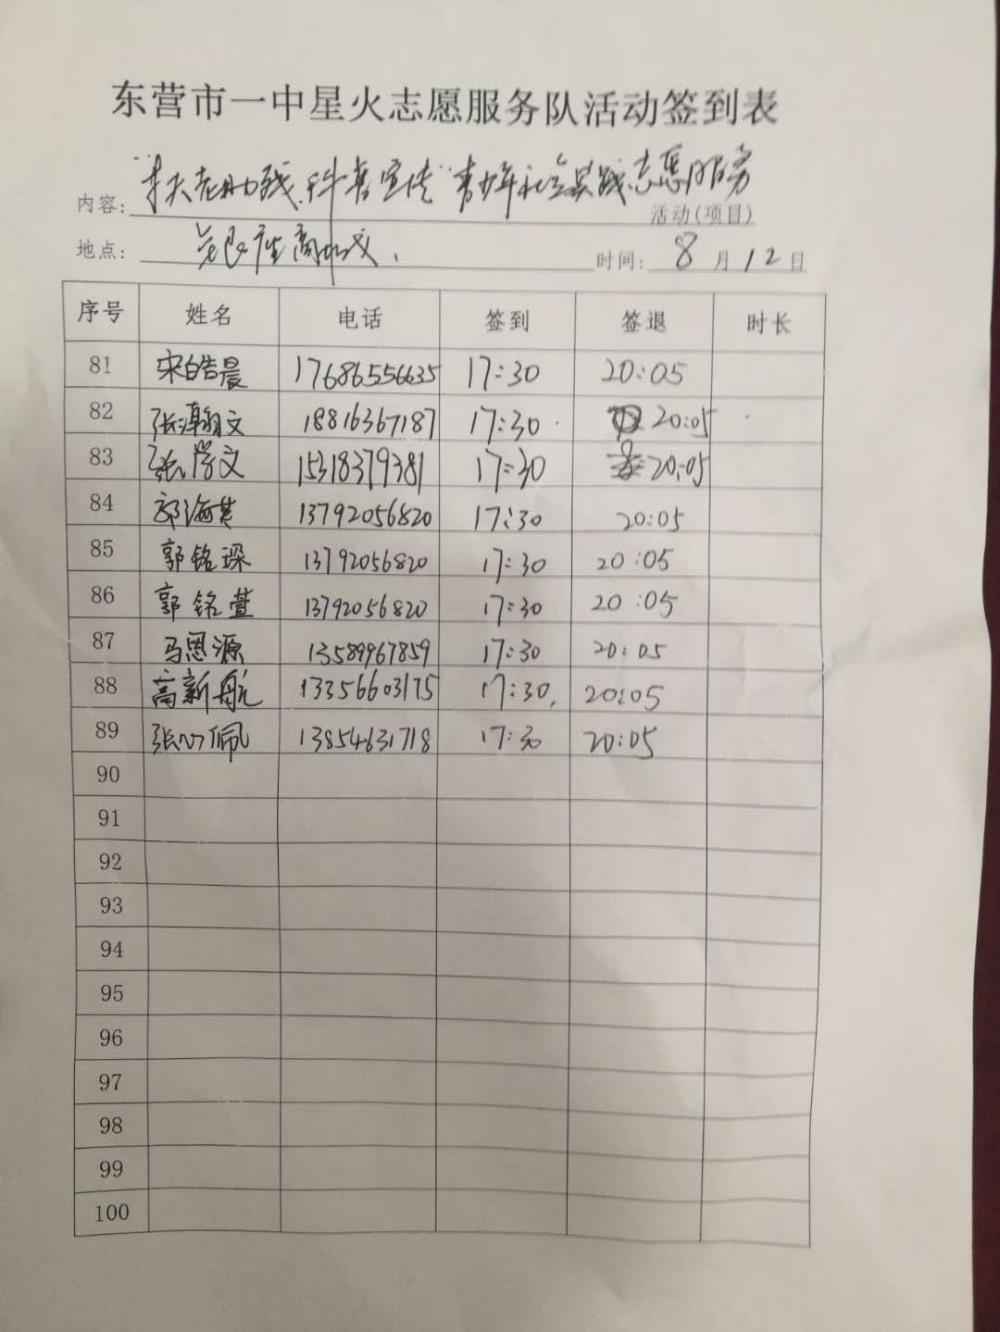 东营市一中星火志愿服务队活动签到表
内容: "扶老助残,科普宣传"青少年社会实践志愿服务 活动(项目)
地点: 银座商城. 时间: 8月12日
序号 姓名 电话 签到 签退 时长
81 宋皓晨 17686556635 17:30 20:05
82 张瀚文 18816367187 17:30 20:05
83 张学文 15318379381 17:30 20:05
84 郭海英 13792056820 17:30 20:05
85 郭铭琛 13792056820 17:30 20:05
86 郭铭萱 13792056820 17:30 20:05
87 马恩源 13589967859 17:30 20:05
88 高新航 13356603175 17:30. 20:05
89 张心佩 13854631718 17:30 20:05
90
91
92
93
94
95
96
97
98
99
100